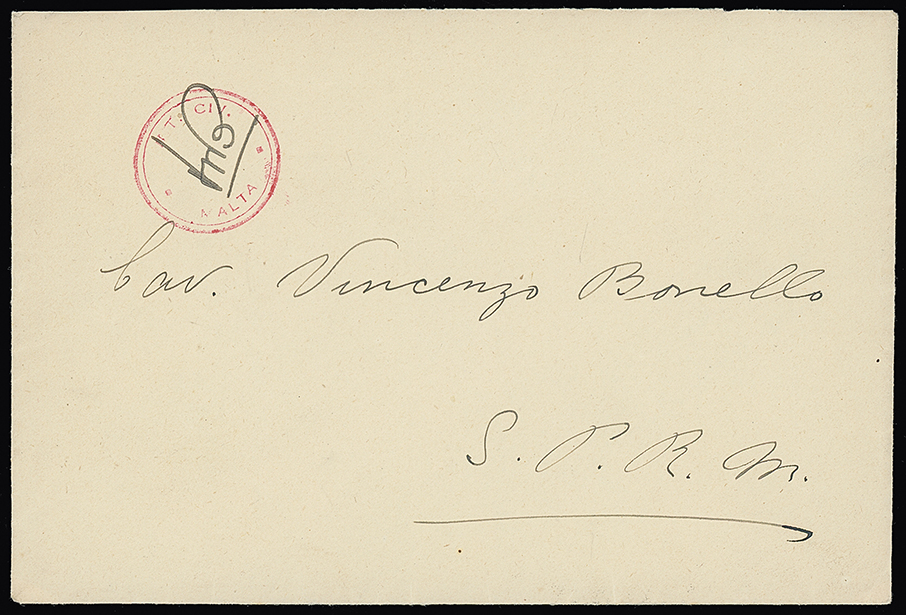 T. CIV.
MALTA
Cav. Vincenzo Bonello
S. P. R. M.